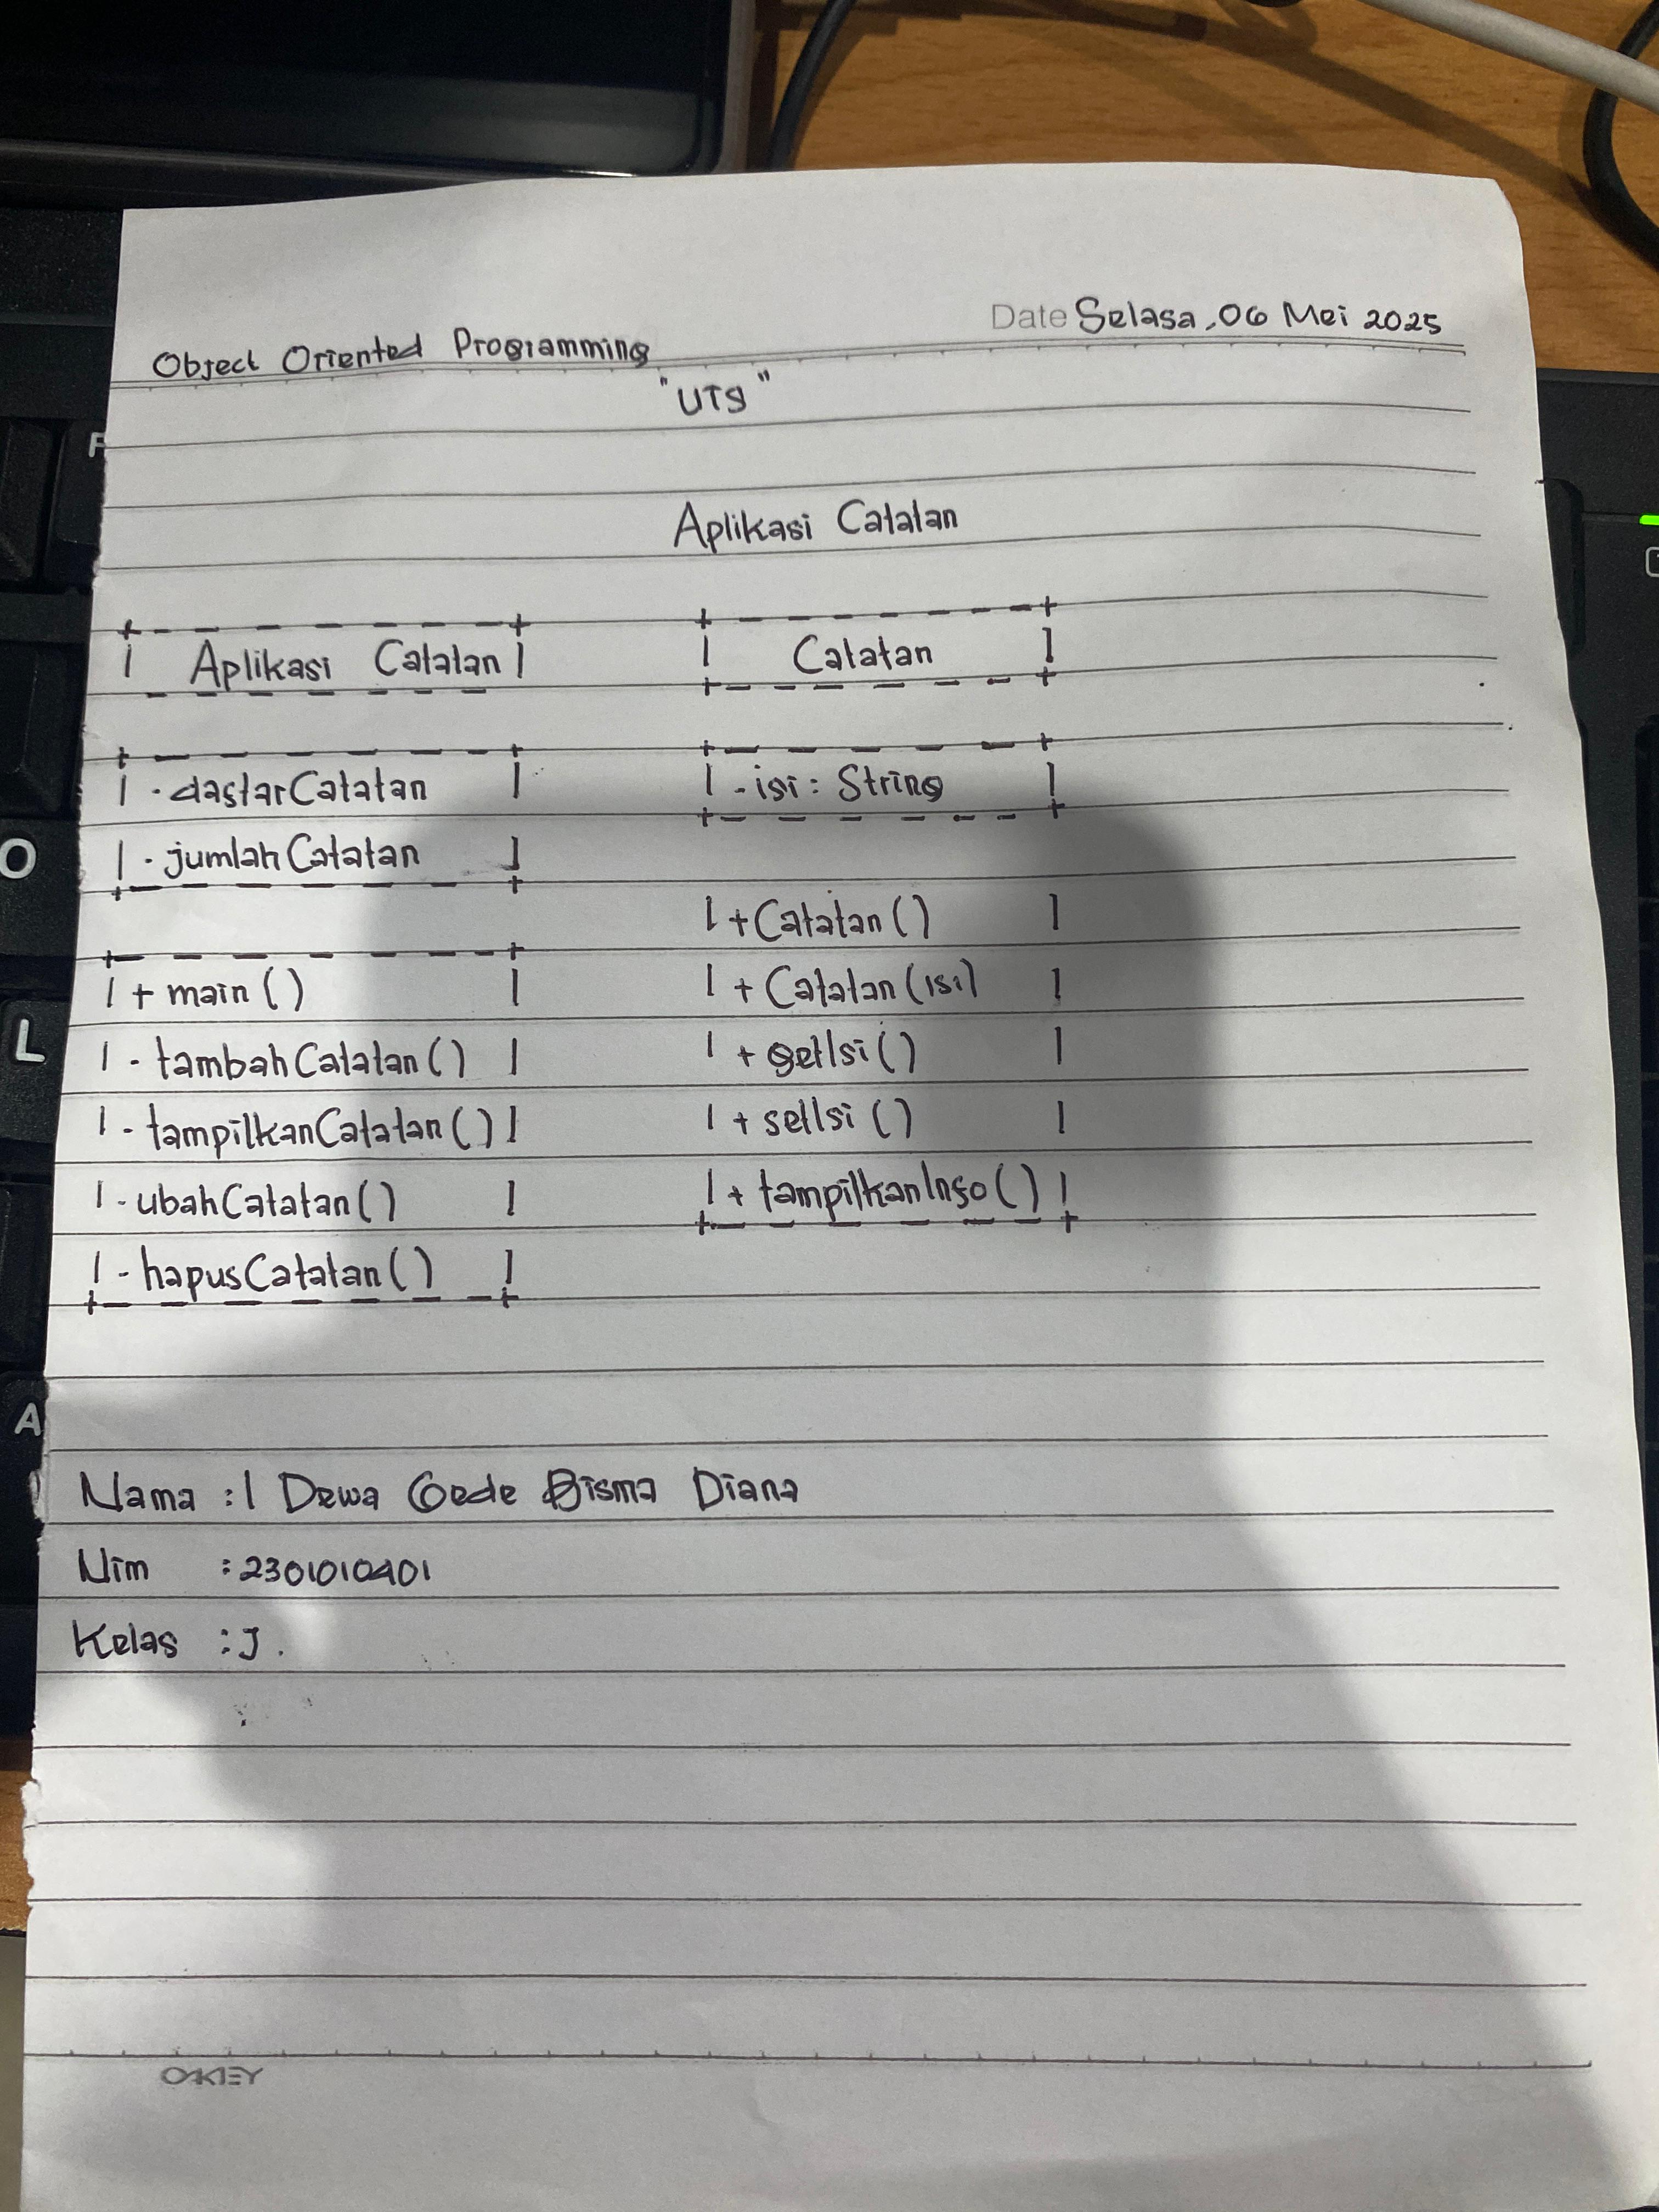 Date Selasa, 06 Mei 2025
Object Oriented Programming
"UTS"
Aplikasi Catatan
Aplikasi Catatan
- daftarCatatan
- jumlahCatatan
+ main ()
- tambahCatatan ()
- tampilkanCatatan ()
- ubahCatatan ()
- hapusCatatan ()
Catatan
- isi : String
+ Catatan ()
+ Catatan (isi)
+ getIsi ()
+ setIsi ()
+ tampilkanInfo ()
Nama : I Dewa Gede Bisma Diana
Nim : 2301010401
Kelas : J.
OKEY
F
O
L
A